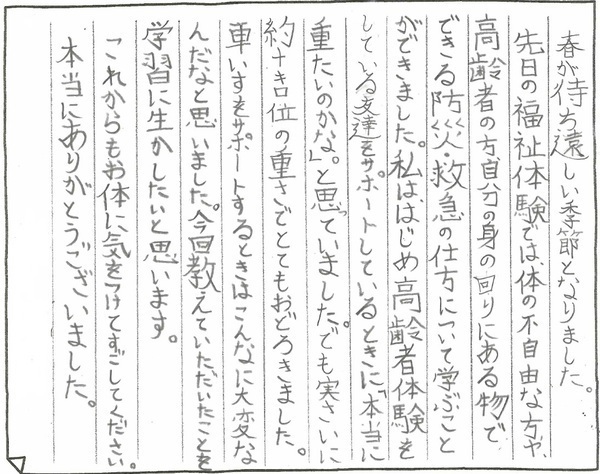 春が待ち遠しい季節となりました。
先日の福祉体験では、体の不自由な方や、
高齢者の方、自分の身の回りにある物で
できる防災・救急の仕方について学ぶこと
ができました。私は、はじめ高齢者体験を
している友達をサポートしているときに「本当に
重たいのかな。」と思っていました。でも実さいに
約十キロ位の重さでとてもおどろきました。
車いすをサポートするときはこんなに大変な
んだなと思いました。今回教えていただいたことを
学習に生かしたいと思います。
これからもお体に気をつけてすごしてください。
本当にありがとうございました。